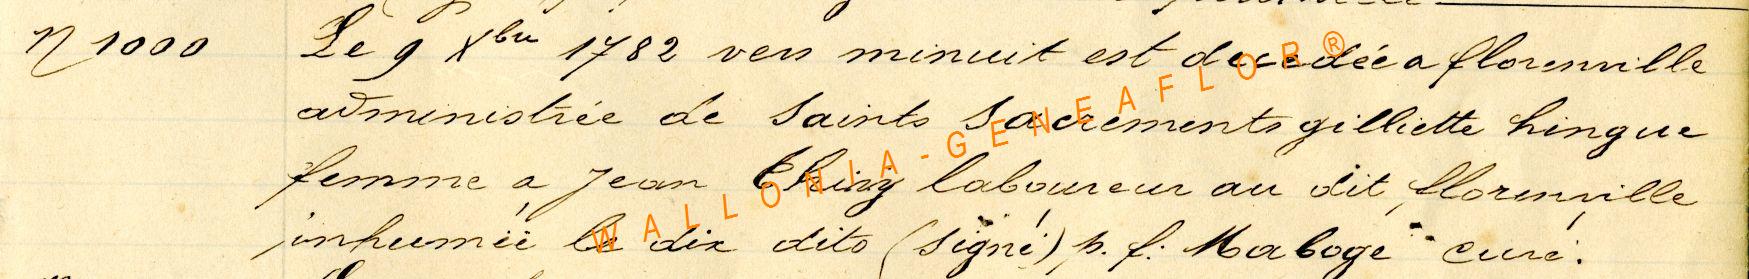 N 1000 Le 9 Xbre 1782 vers minuit est decedée a florenville
administrée de Saints Sacrements gilliette hingue
femme a Jean Thiry laboureur au dit florenville
inhumée le dix dito (Signé) p. f. Maboge curé.
WALLONIA-GENEAFLOR®